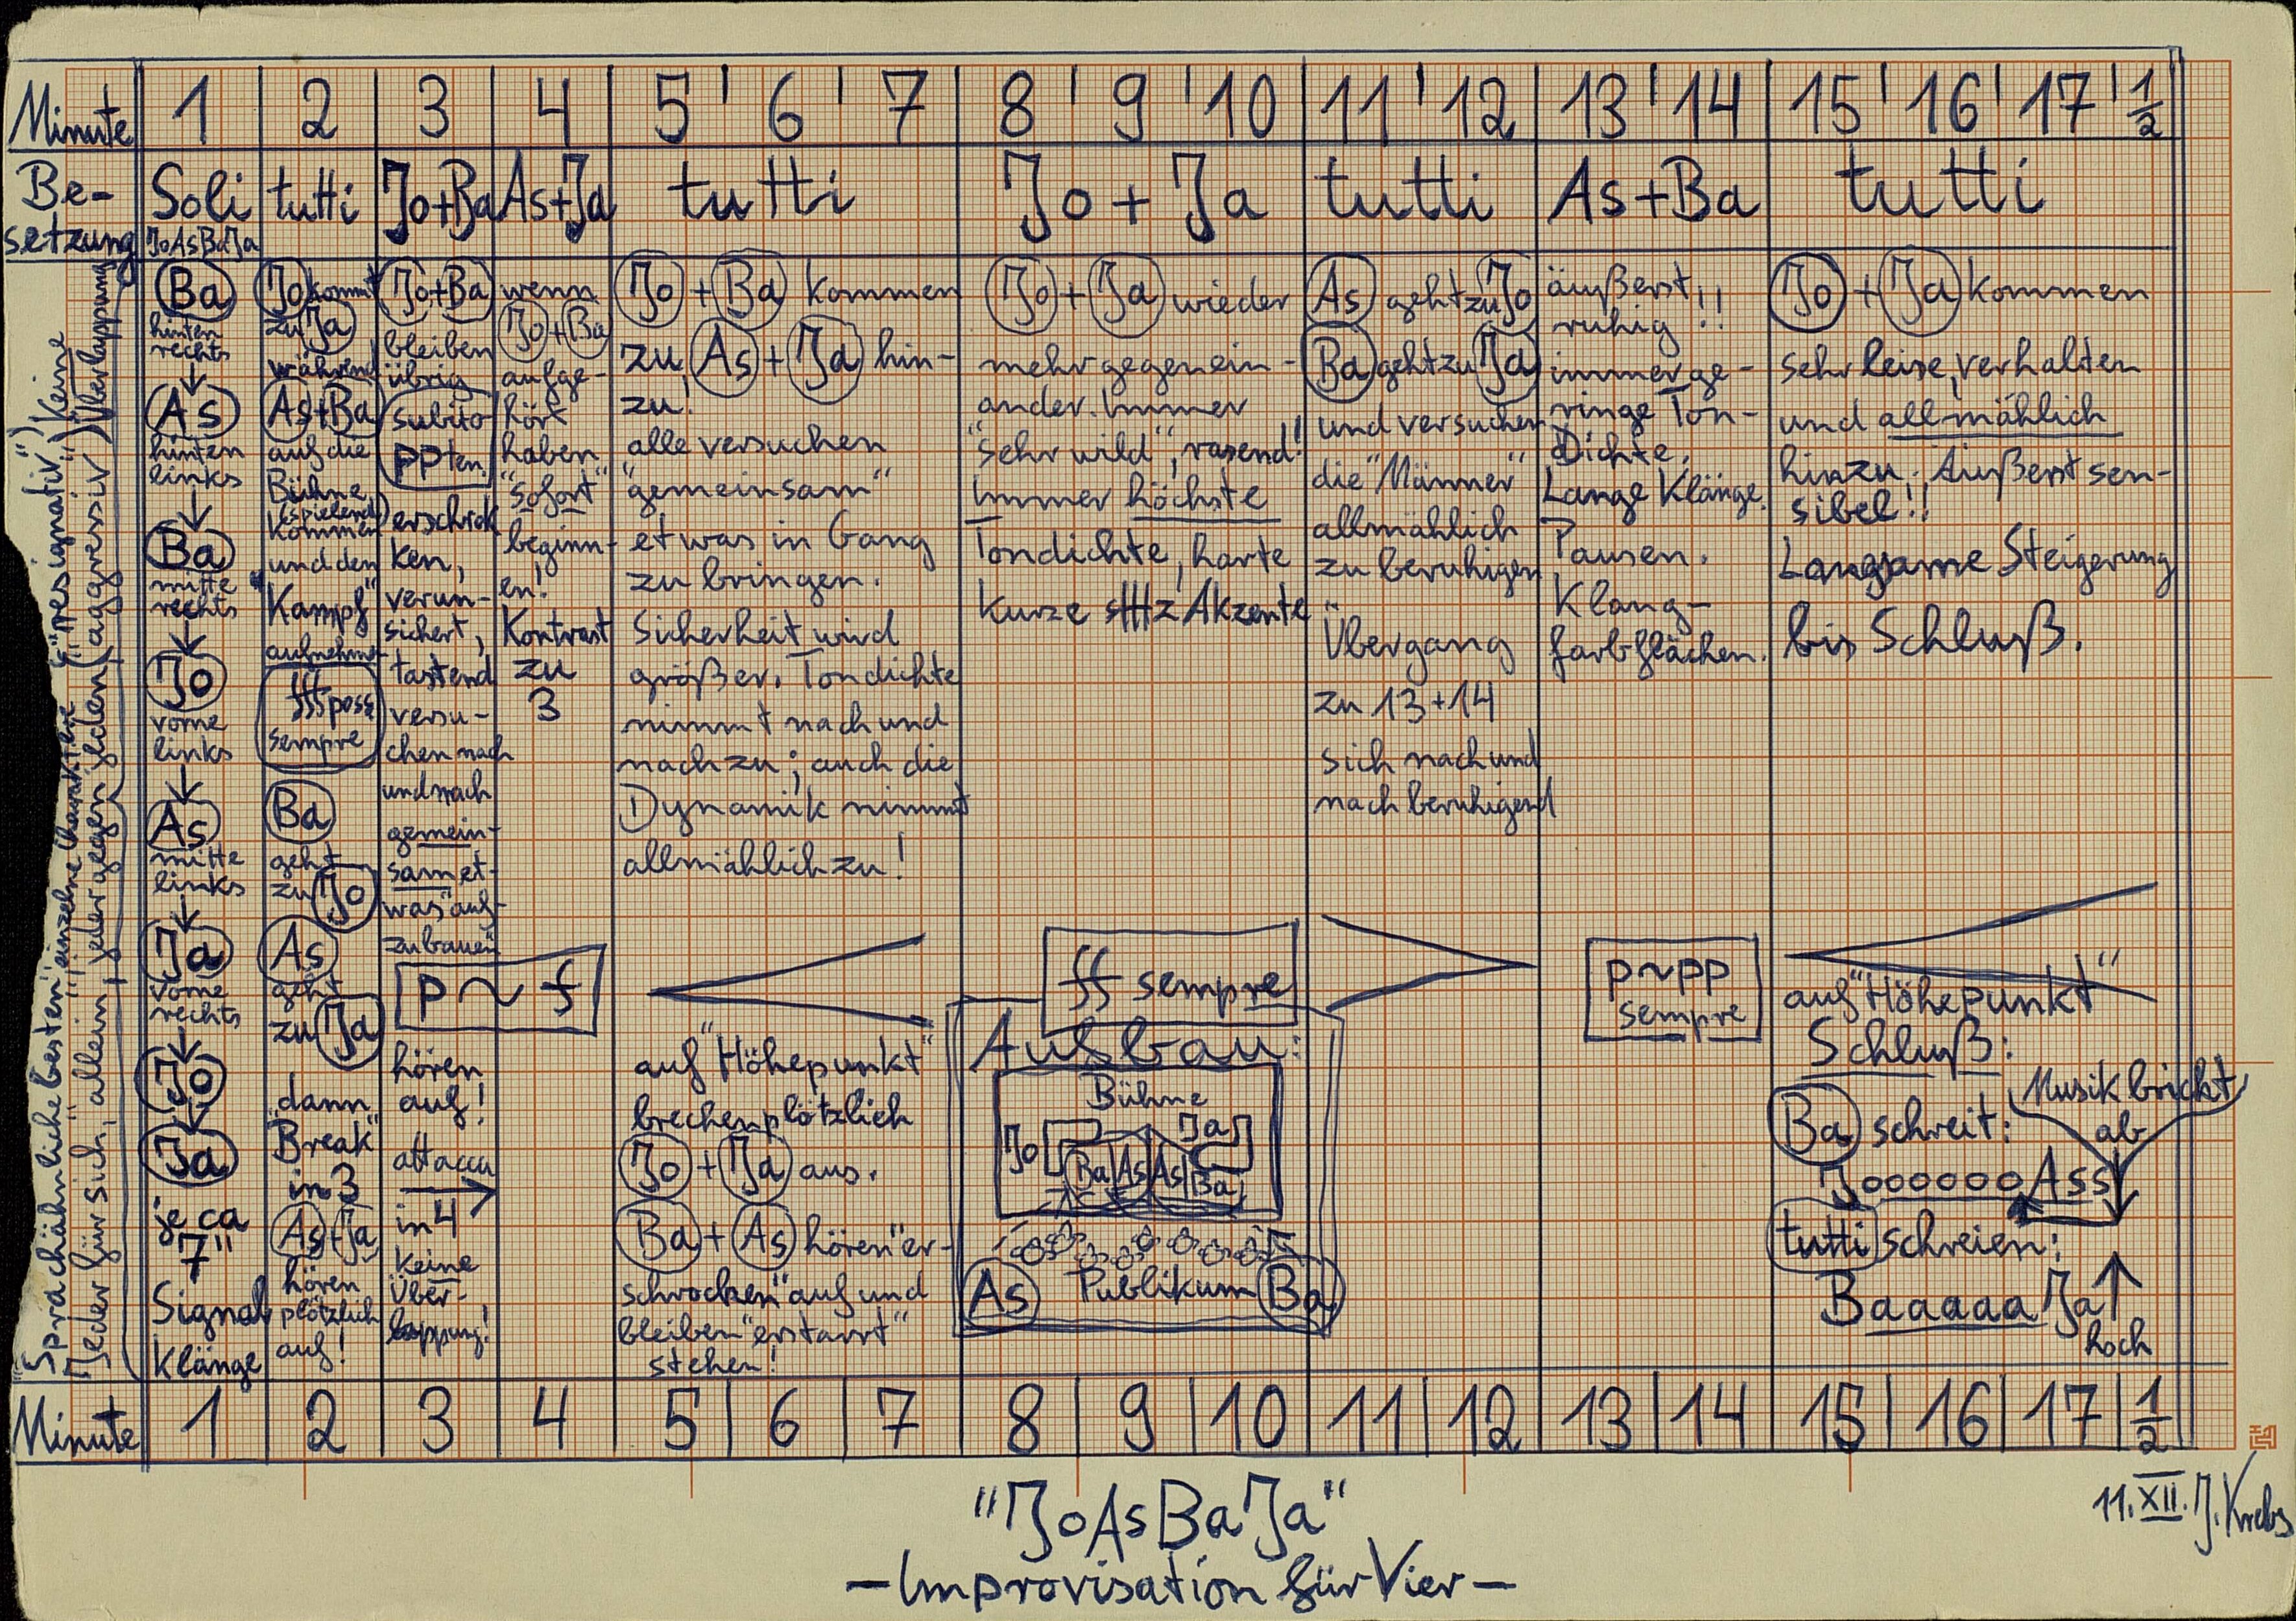 Minute 1 2 3 4 5 6 7 8 9 10 11 12 13 14 15 16 17 1/2
Be-
setzung
Soli
JoAsBaJa
tutti
Jo+Ba
As+Ja
tutti
Jo + Ja
tutti
As+Ba
tutti
"Sprachähnliche Gesten" einzelne Charaktere ("resignativ") keine
Jeder für sich, "allein", jeder gegen jeden (aggressiv) Überlappung
Ba
hinten
rechts
As
hinten
links
Ba
mitte
rechts
Jo
vorne
links
As
mitte
links
Ja
vorne
rechts
Jo
Ja
je ca
7"
Signal
klänge
Jo kommt
zu Ja
während
As+Ba
auf die
Bühne
(spielend)
kommen
und den
"Kampf"
aufnehmen
fff poss
sempre
Ba
geht
zu Jo
As
geht
zu Ja
dann
"Break"
in 3
As+Ja
hören
plötzlich
auf!
Jo+Ba
bleiben
übrig
subito
ppten
erschrok
ken,
verun-
sichert,
tastend
versu-
chen nach
und nach
gemein-
sam et-
was auf-
zubauen
p ~ f
hören
auf!
attacca
in 4
keine
Über-
lappung!
wenn
Jo+Ba
aufge-
hört
haben
"sofort"
beginn-
en!
Kontrast
zu
3
Jo + Ba kommen
zu As + Ja hin-
zu!
alle versuchen
"gemeinsam"
etwas in Gang
zu bringen.
Sicherheit wird
größer. Tondichte
nimmt nach und
nach zu; auch die
Dynamik nimmt
allmählich zu!
auf "Höhepunkt"
brechen plötzlich
Jo + Ja aus.
Ba + As hören "er-
schrocken" auf und
bleiben "erstarrt"
stehen!
Jo + Ja wieder
mehr gegenein-
ander. Immer
"sehr wild", rasend!
Immer höchste
Tondichte, harte
kurze sfffz Akzente
ff sempre
Aufbau:
Bühne
Jo Ja
Ba As As Ba
As Publikum Ba
As geht zu Jo
Ba geht zu Ja
und versuchen
die "Männer"
allmählich
zu beruhigen
Übergang
zu 13+14
sich nach und
nach beruhigend
äußerst!!
ruhig!!
immer ge-
ringe Ton-
Dichte.
Lange Klänge.
Pausen.
Klang-
farbflächen.
p~pp
sempre
Jo + Ja kommen
sehr leise, verhalten
und allmählich
hinzu. Äußerst sen-
sibel!!
Langsame Steigerung
bis Schluß.
auf "Höhepunkt"
Schluß:
Musik bricht
ab
Ba schreit:
Joooooo Ass
tutti schreien:
Baaaaa Ja
hoch
Minute 1 2 3 4 5 6 7 8 9 10 11 12 13 14 15 16 17 1/2
"JoAsBaJa"
- Improvisation für Vier -
11.XII. J. Krebs